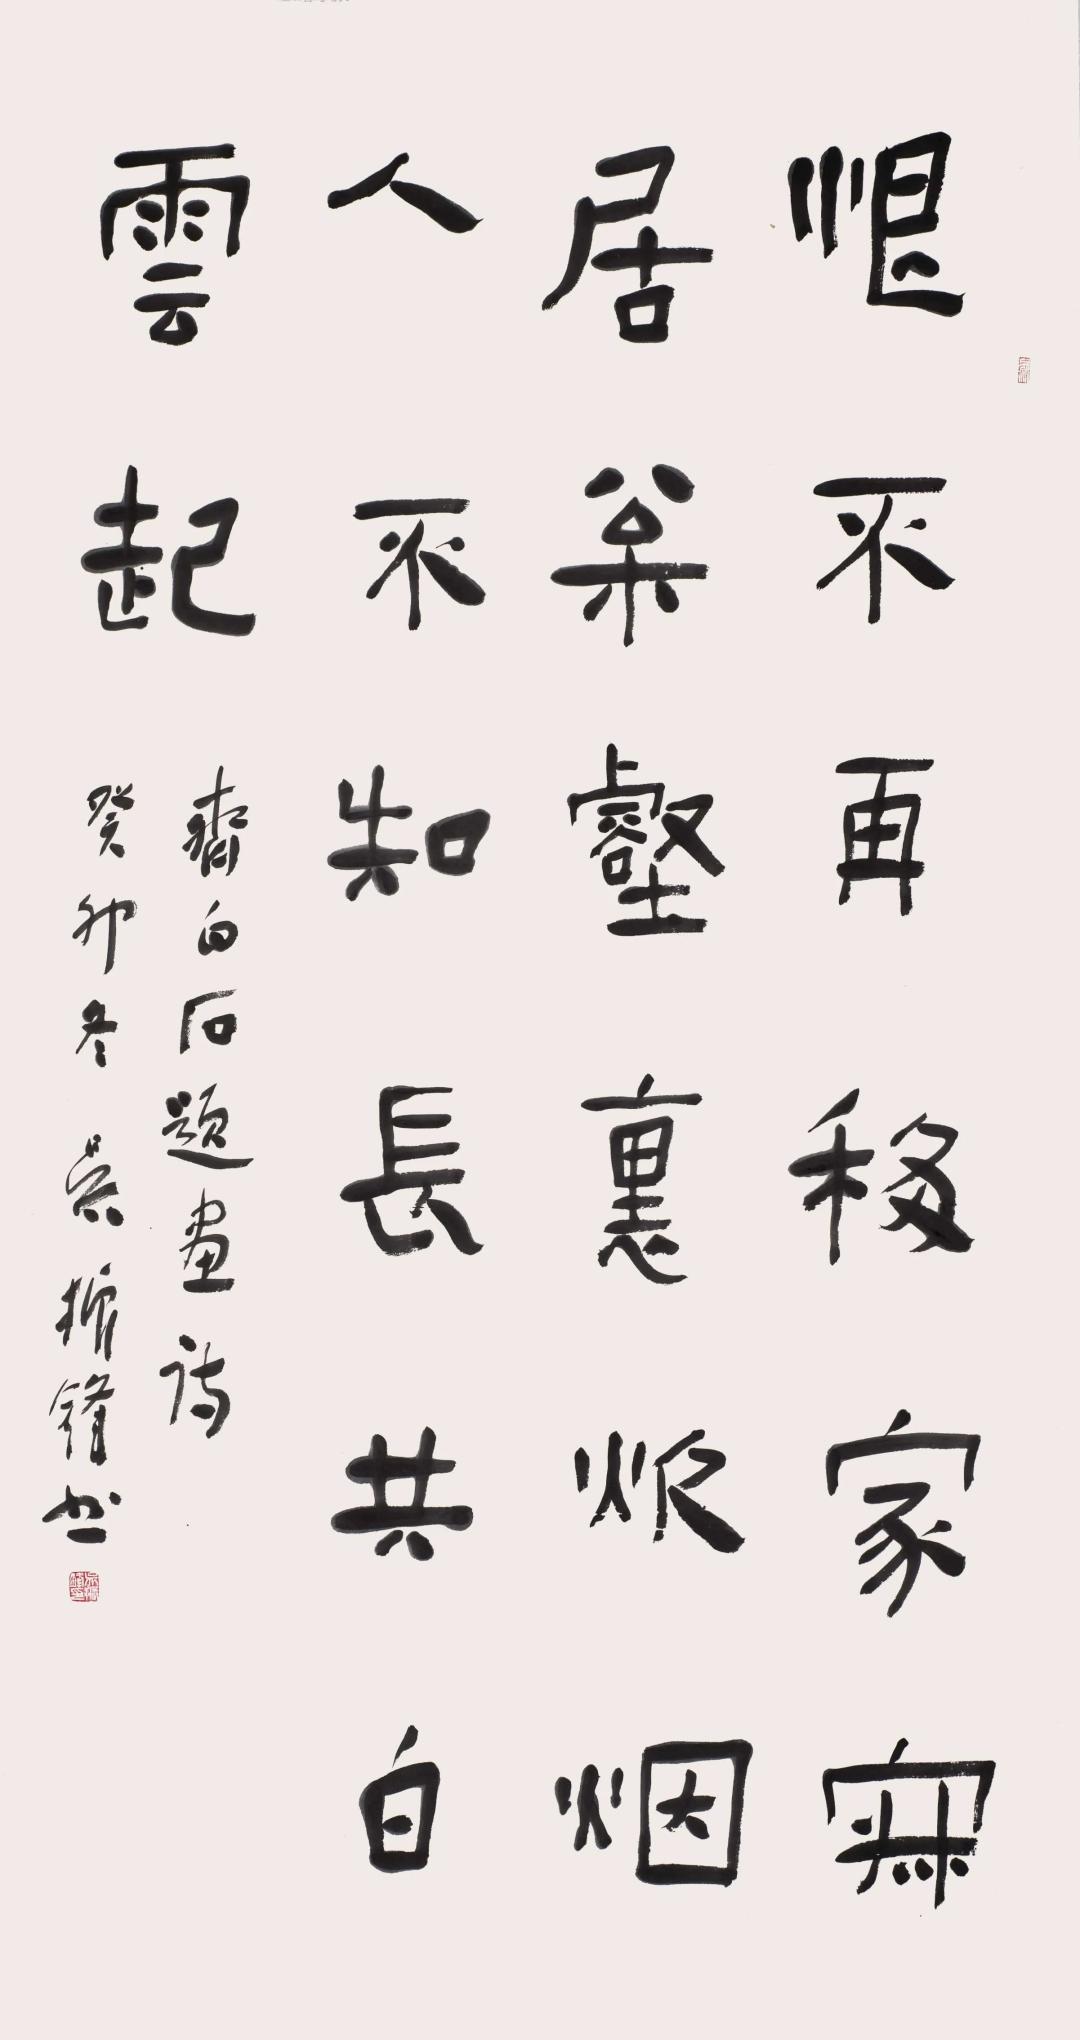 恨不再移家
居枀壑裏炊烟
人不知長共白
雲起
齊白石題畫詩
癸卯冬吳振鋒书